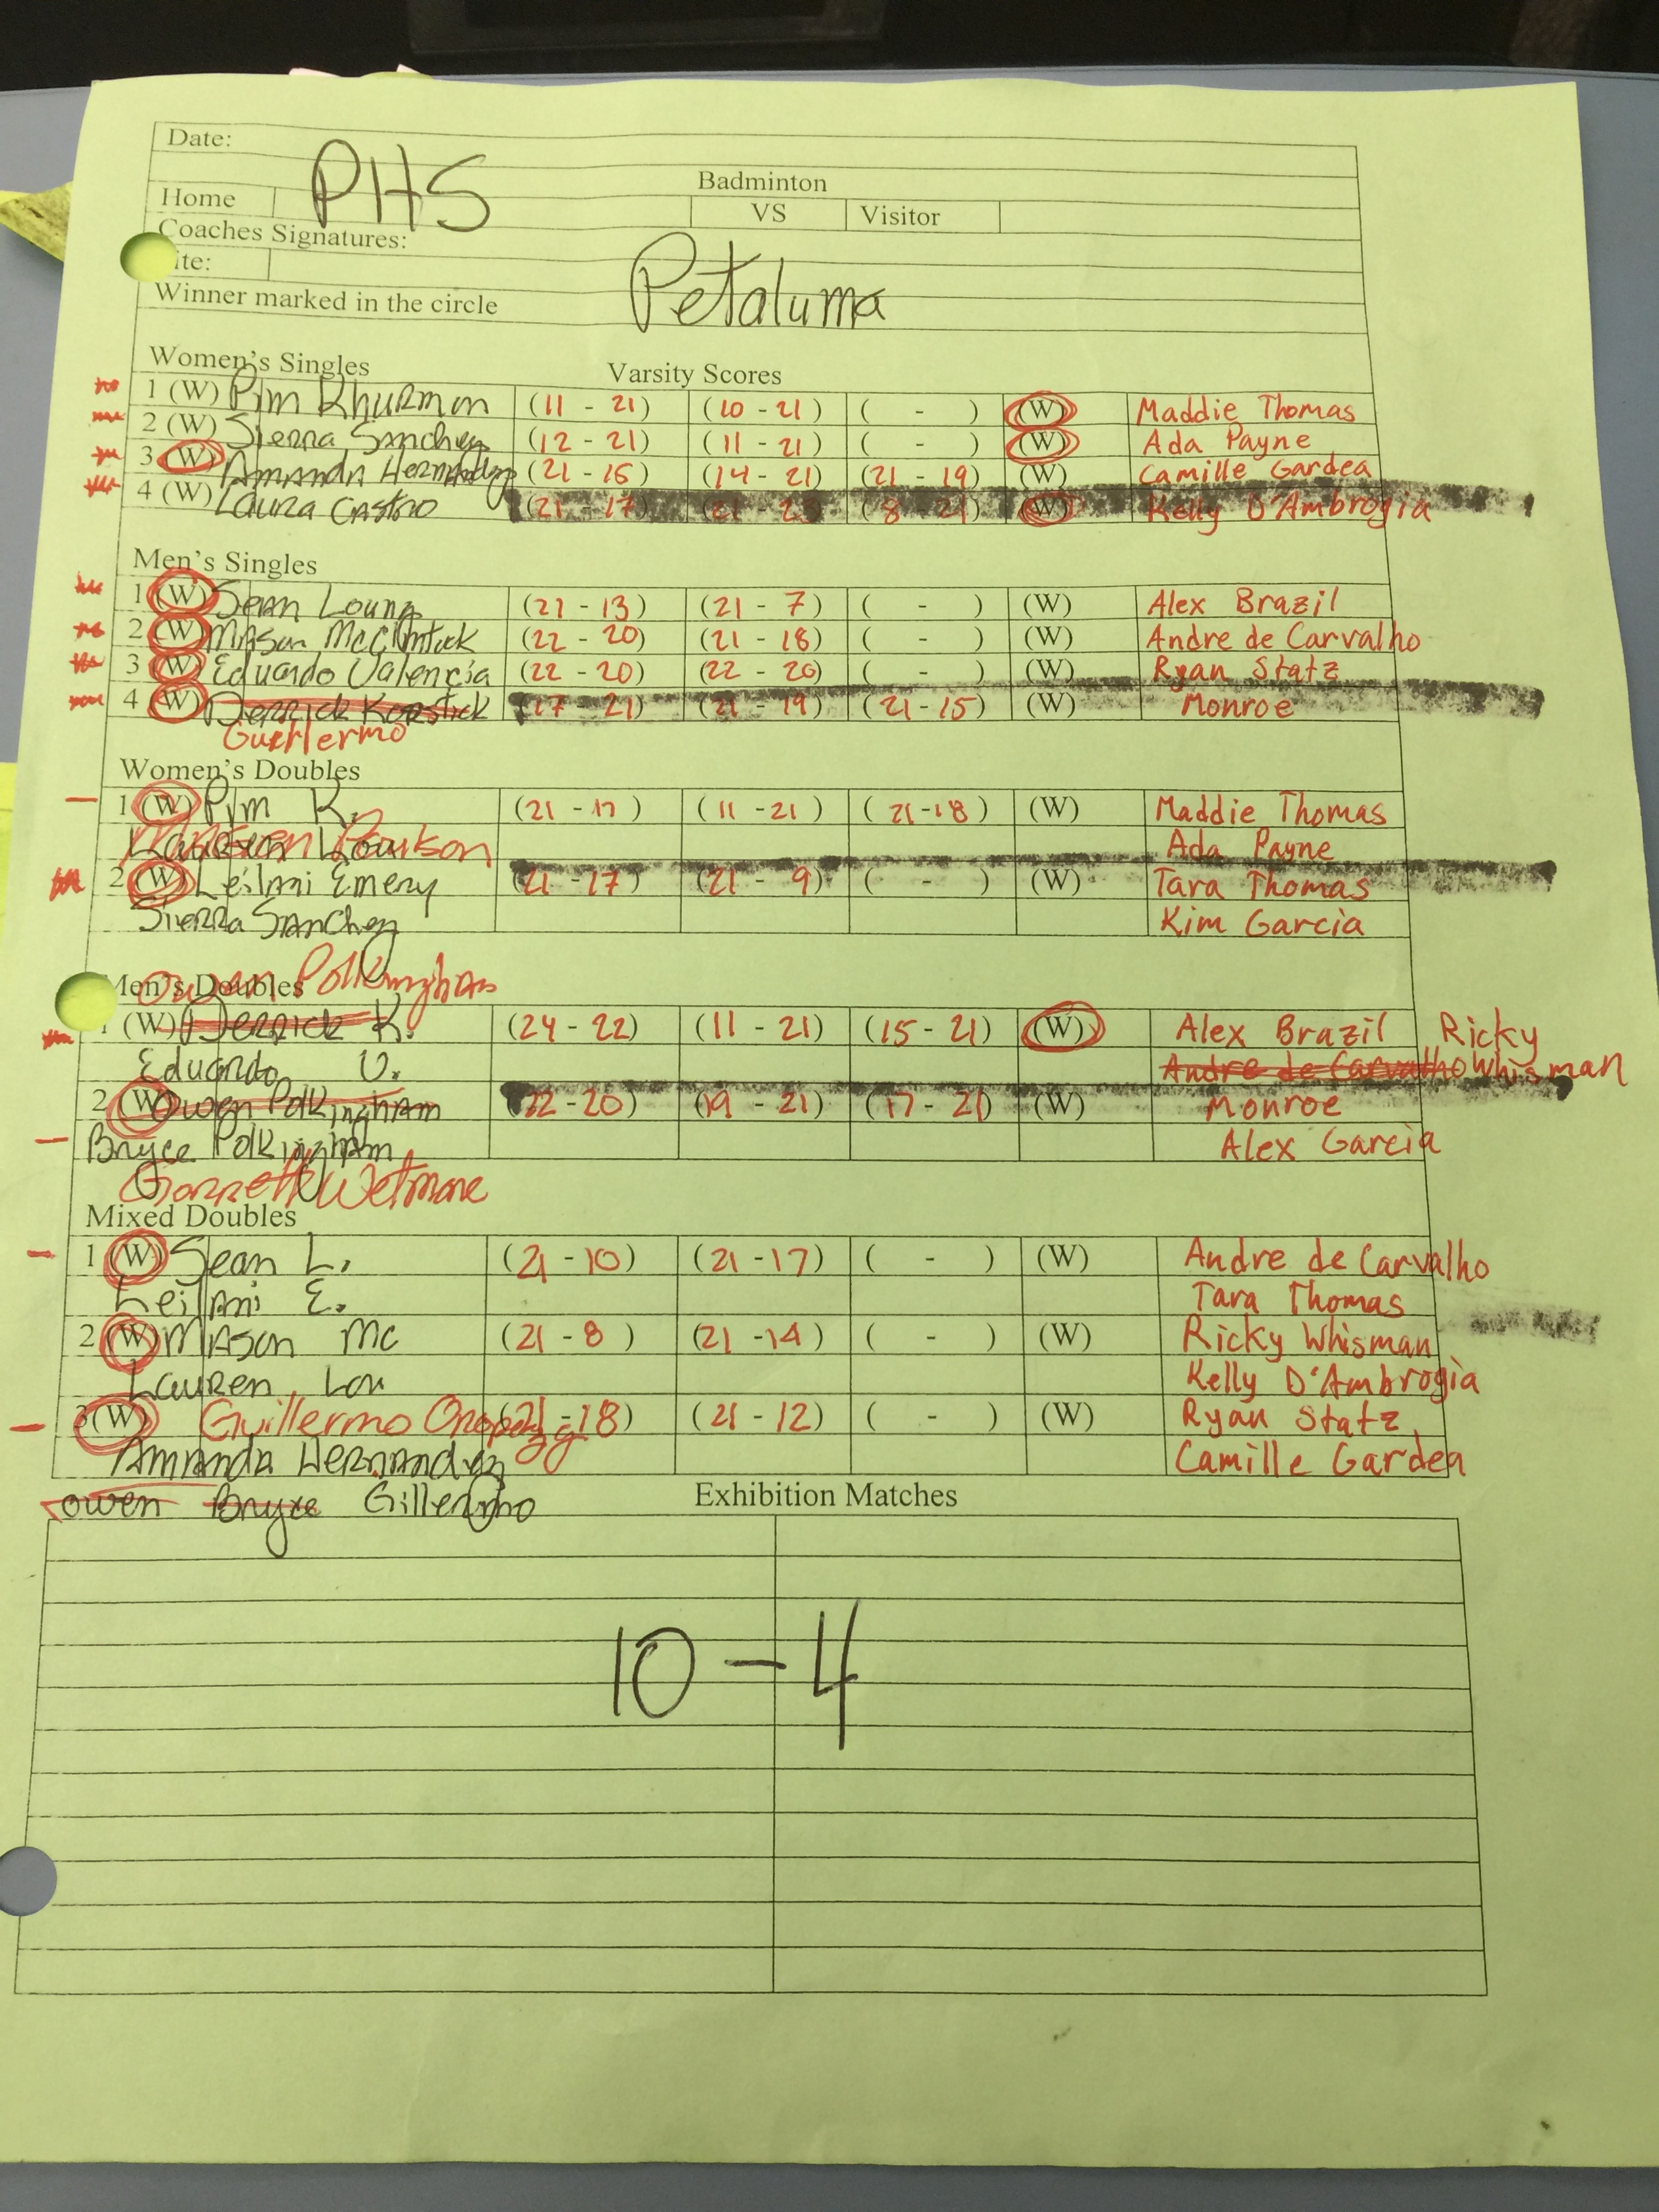 Date:
PHS
Badminton
Home VS Visitor
Coaches Signatures:
ite:
Petaluma
Winner marked in the circle
Women's Singles Varsity Scores
1 (W) Pim Khurmon (11 - 21) (10 - 21) ( - ) (W) Maddie Thomas
2 (W) Sierra Sanchez (12 - 21) (11 - 21) ( - ) (W) Ada Payne
3 (W) Amanda Hernandez (21 - 15) (14 - 21) (21 - 19) (W) Camille Gardea
4 (W) Laura Castro (21 - 17) (21 - 23) (8 - 21) (W) Kelly D'Ambrogia
Men's Singles
1 (W) Sean Loung (21 - 13) (21 - 7) ( - ) (W) Alex Brazil
2 (W) Mason McClintick (22 - 20) (21 - 18) ( - ) (W) Andre de Carvalho
3 (W) Eduardo Valencia (22 - 20) (22 - 20) ( - ) (W) Ryan Statz
4 (W) Derrick Korstick (17 - 21) (21 - 19) (21 - 15) (W) Monroe
Guerlermo
Women's Doubles
1 (W) Pim K. (21 - 17) (11 - 21) (21 - 18) (W) Maddie Thomas
Lauren Lou Ada Payne
2 (W) Leilani Emery (21 - 17) (21 - 9) ( - ) (W) Tara Thomas
Sierra Sanchez Kim Garcia
Owen Polkingham
Men's Doubles
1 (W) Derrick K. (24 - 22) (11 - 21) (15 - 21) (W) Alex Brazil Ricky
Eduardo V. Andre de Carvalho Whisman
2 (W) Owen Polkingham (22 - 20) (19 - 21) (17 - 21) (W) Monroe
Bryce Polkingham Alex Garcia
Garrett Wetmore
Mixed Doubles
1 (W) Sean L. (21 - 10) (21 - 17) ( - ) (W) Andre de Carvalho
Leilani E. Tara Thomas
2 (W) Mason Mc (21 - 8) (21 - 14) ( - ) (W) Ricky Whisman
Lauren Lou Kelly D'Ambrogia
3 (W) Guillermo (21 - 18) (21 - 12) ( - ) (W) Ryan Statz
Amanda Hernandez Camille Gardea
Owen Bryce Gillermo Exhibition Matches
10 - 4